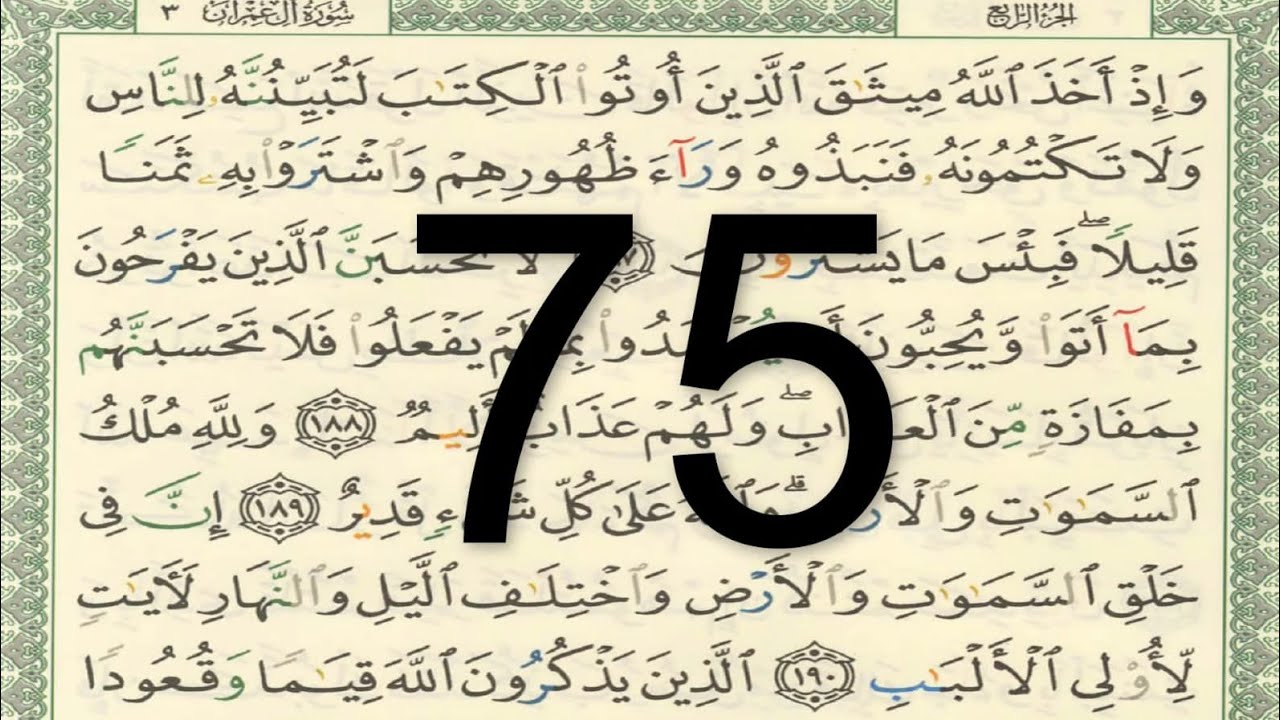 سُورَةُ آلِ عِمْرَانَ ٣
الجُزْءُ الرَّابِعُ
وَإِذْ أَخَذَ ٱللَّهُ مِيثَـٰقَ ٱلَّذِينَ أُوتُوا۟ ٱلْكِتَـٰبَ لَتُبَيِّنُنَّهُۥ لِلنَّاسِ
وَلَا تَكْتُمُونَهُۥ فَنَبَذُوهُ وَرَآءَ ظُهُورِهِمْ وَٱشْتَرَوْا۟ بِهِۦ ثَمَنًا
قَلِيلًا ۖ فَبِئْسَ مَا يَشْتَرُونَ ١٨٧ لَا تَحْسَبَنَّ ٱلَّذِينَ يَفْرَحُونَ
بِمَآ أَتَوا۟ وَّيُحِبُّونَ أَن يُحْمَدُوا۟ بِمَا لَمْ يَفْعَلُوا۟ فَلَا تَحْسَبَنَّهُم
بِمَفَازَةٍ مِّنَ ٱلْعَذَابِ ۖ وَلَهُمْ عَذَابٌ أَلِيمٌ ١٨٨ وَلِلَّهِ مُلْكُ
ٱلسَّمَـٰوَٰتِ وَٱلْأَرْضِ ۗ وَٱللَّهُ عَلَىٰ كُلِّ شَىْءٍ قَدِيرٌ ١٨٩ إِنَّ فِى
خَلْقِ ٱلسَّمَـٰوَٰتِ وَٱلْأَرْضِ وَٱخْتِلَـٰفِ ٱلَّيْلِ وَٱلنَّهَارِ لَـَٔايَـٰتٍ
لِّأُو۟لِى ٱلْأَلْبَـٰبِ ١٩٠ ٱلَّذِينَ يَذْكُرُونَ ٱللَّهَ قِيَـٰمًا وَقُعُودًا
75